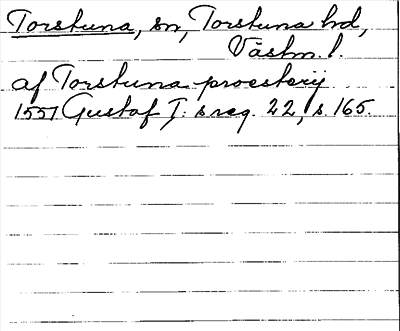 Torstuna, sn, Torstuna hd,
Västm. l.
af Torstuna proesterij
1551 Gustaf I: s reg. 22, s. 165.